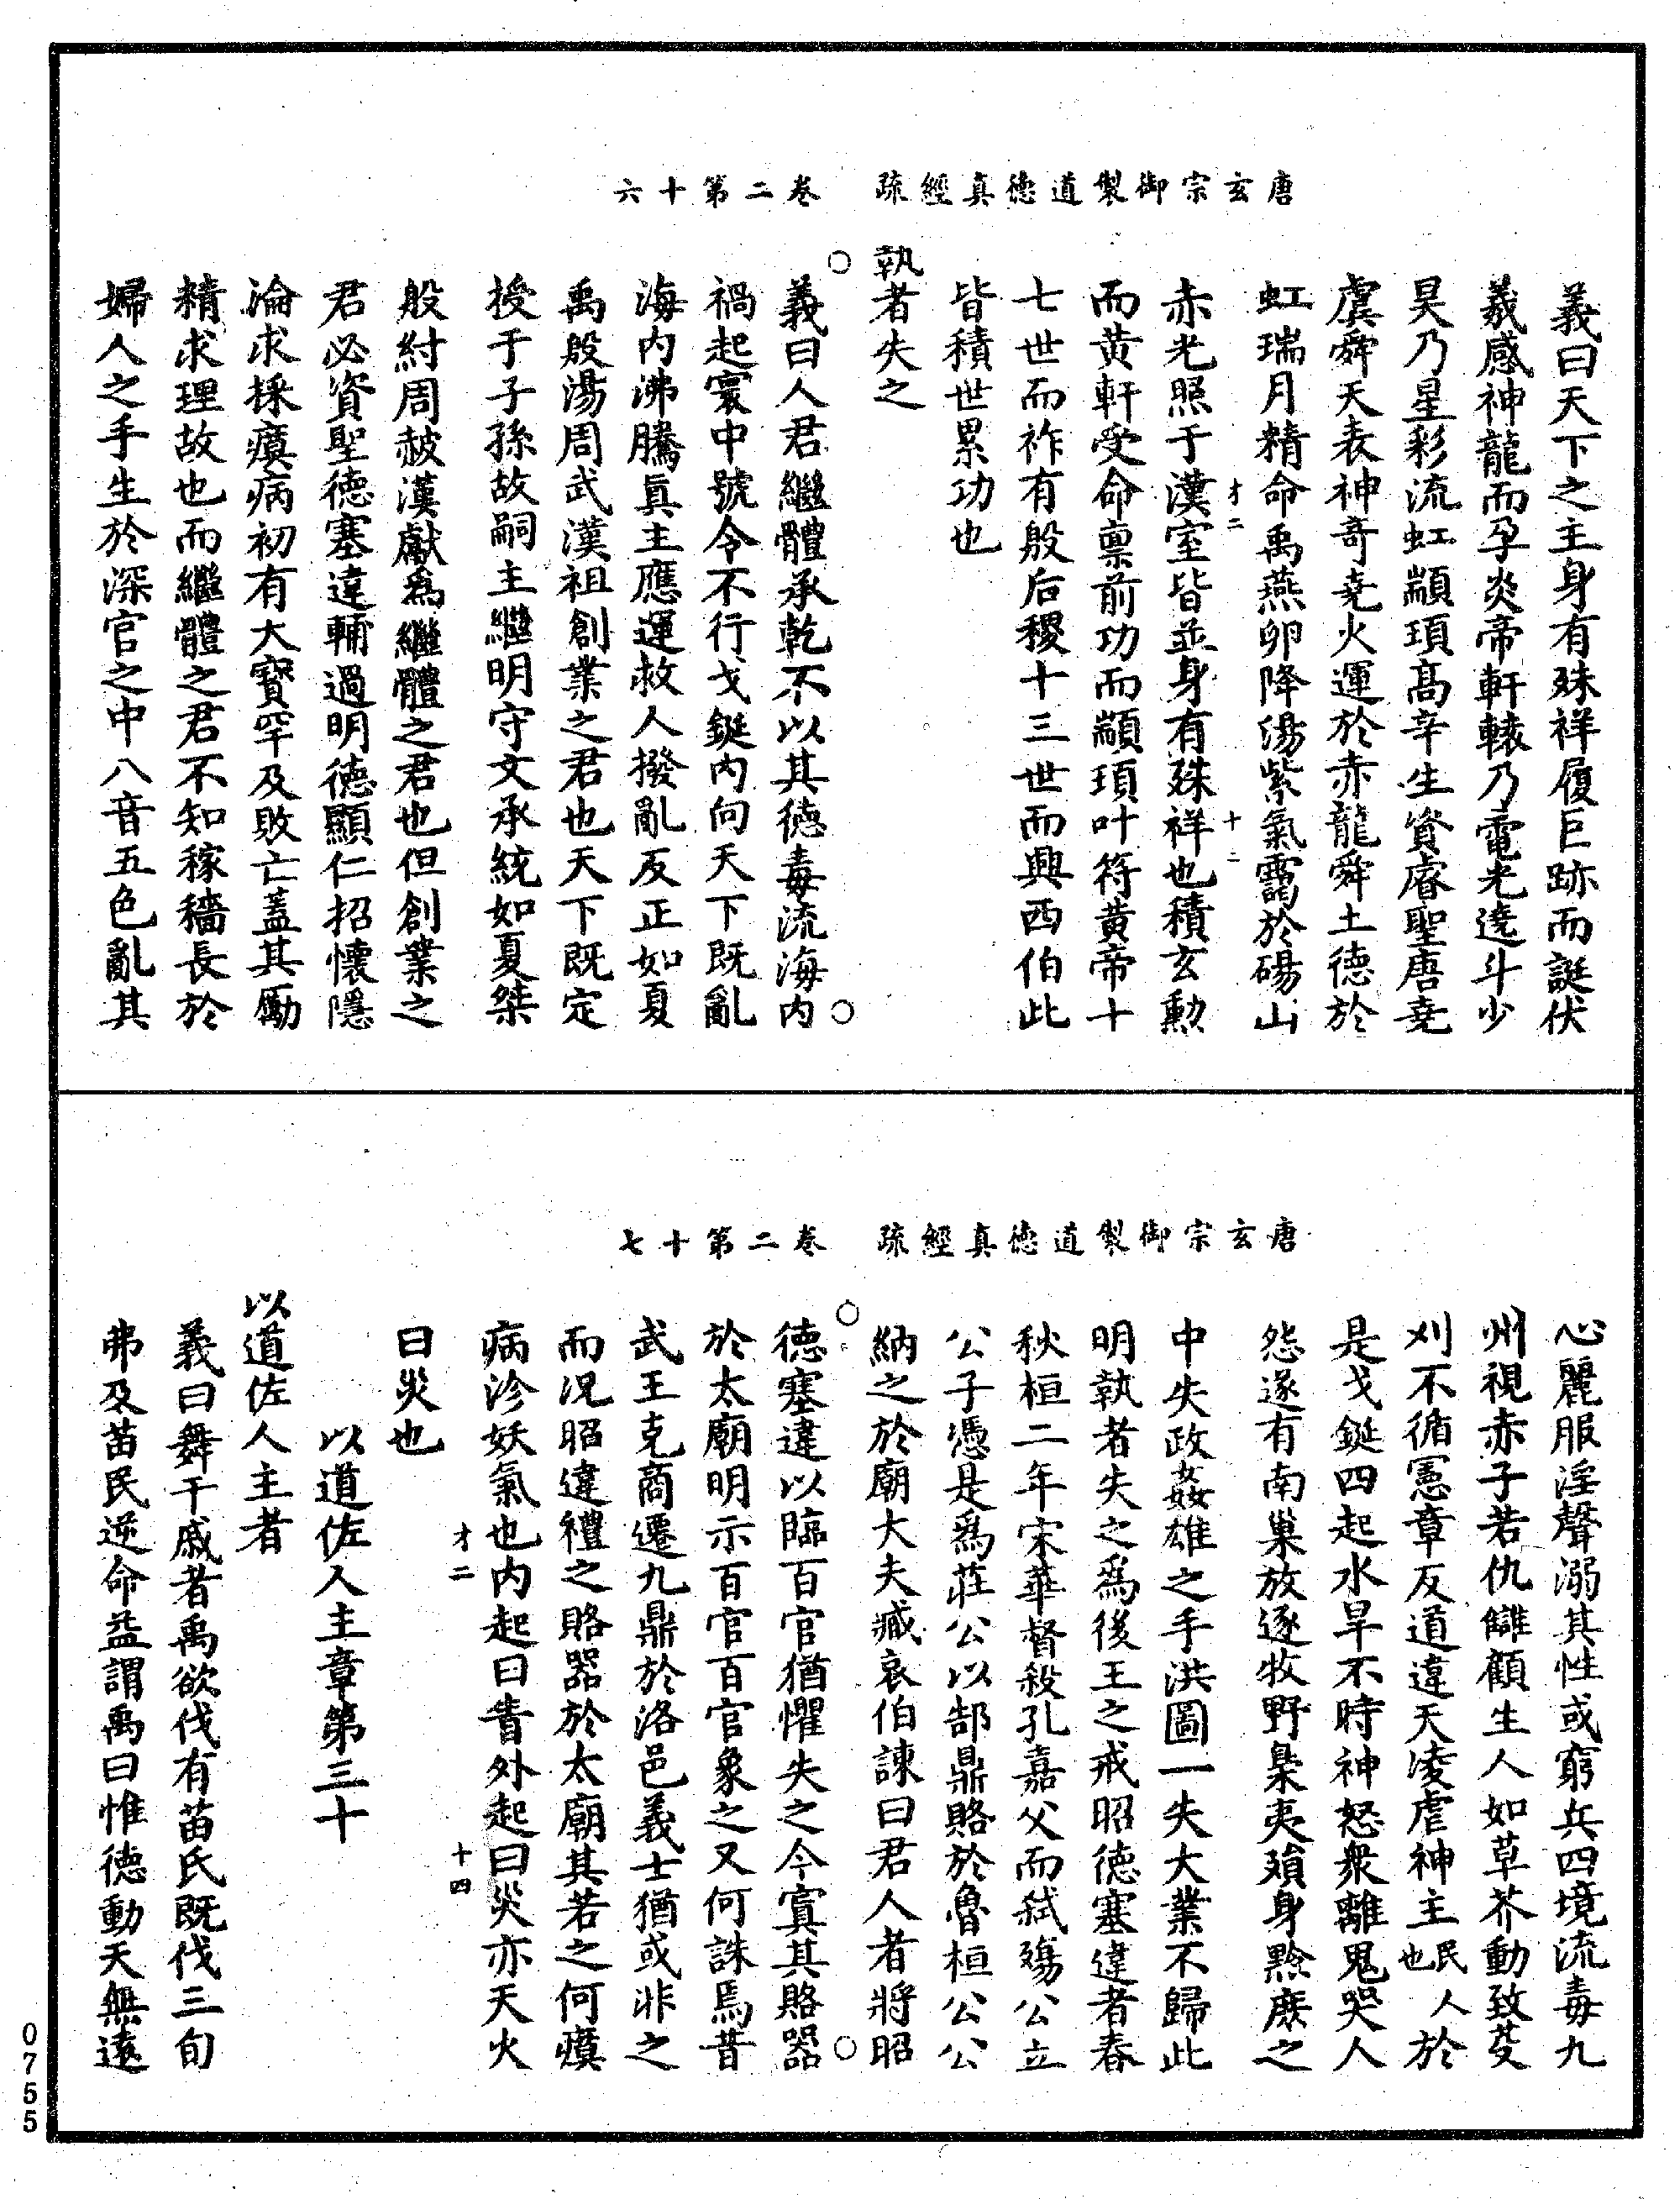 唐玄宗御製道德真經疏　卷二第十六
義曰天下之主身有殊祥履巨跡而誕伏
羲感神龍而孕炎帝軒轅乃電光遶斗少
昊乃星彩流虹顓頊髙辛生資睿聖唐堯
虞舜天表神竒堯火運於赤龍舜土德於
虹瑞月精命禹燕卵降湯紫氣靄於碭山
才二　十三
赤光照于漢室皆並身有殊祥也積玄勲
而黄軒受命稟前功而顓頊叶符黄帝十
七世而祚有殷后稷十三世而興西伯此
皆積世累功也
執者失之
義曰人君繼體承乾不以其德毒流海内
禍起寰中號令不行戈鋋内向天下既亂
海内沸騰真主應運救人撥亂反正如夏
禹殷湯周武漢祖創業之君也天下既定
授于子孫故嗣主繼明守文承統如夏桀
殷紂周赧漢獻爲繼體之君也但創業之
君必資聖德塞違輔過明德顯仁招懷隱
淪求採瘼病初有大寳罕及敗亡蓋其勵
精求理故也而繼體之君不知稼穡長於
婦人之手生於深宫之中八音五色亂其
唐玄宗御製道德真經疏　卷二第十七
心麗服淫聲溺其性或窮兵四境流毒九
州視赤子若仇讎顧生人如草芥動致芟
刈不循憲章反道違天凌虐神主民人也於
是戈鋋四起水旱不時神怒衆離鬼哭人
怨遂有南巢放逐牧野梟夷殞身黔庶之
中失政姦雄之手洪圖一失大業不歸此
明執者失之爲後王之戒昭德塞違者春
秋桓二年宋華督殺孔嘉父而弑殤公立
公子憑是爲莊公以郜鼎賂於魯桓公公
納之於廟大夫臧哀伯諫曰君人者將昭
德塞違以臨百官猶懼失之今寘其賂器
於太廟明示百官百官象之又何誅焉昔
武王克商遷九鼎於洛邑義士猶或非之
而况昭違禮之賂器於太廟其若之何瘼
病沴妖氣也内起曰眚外起曰災亦天火
才二　十四
曰災也
以道佐人主章第三十
以道佐人主者
義曰舞干戚者禹欲伐有苗氏既伐三旬
弗及苗民逆命益謂禹曰惟德動天無遠
0755